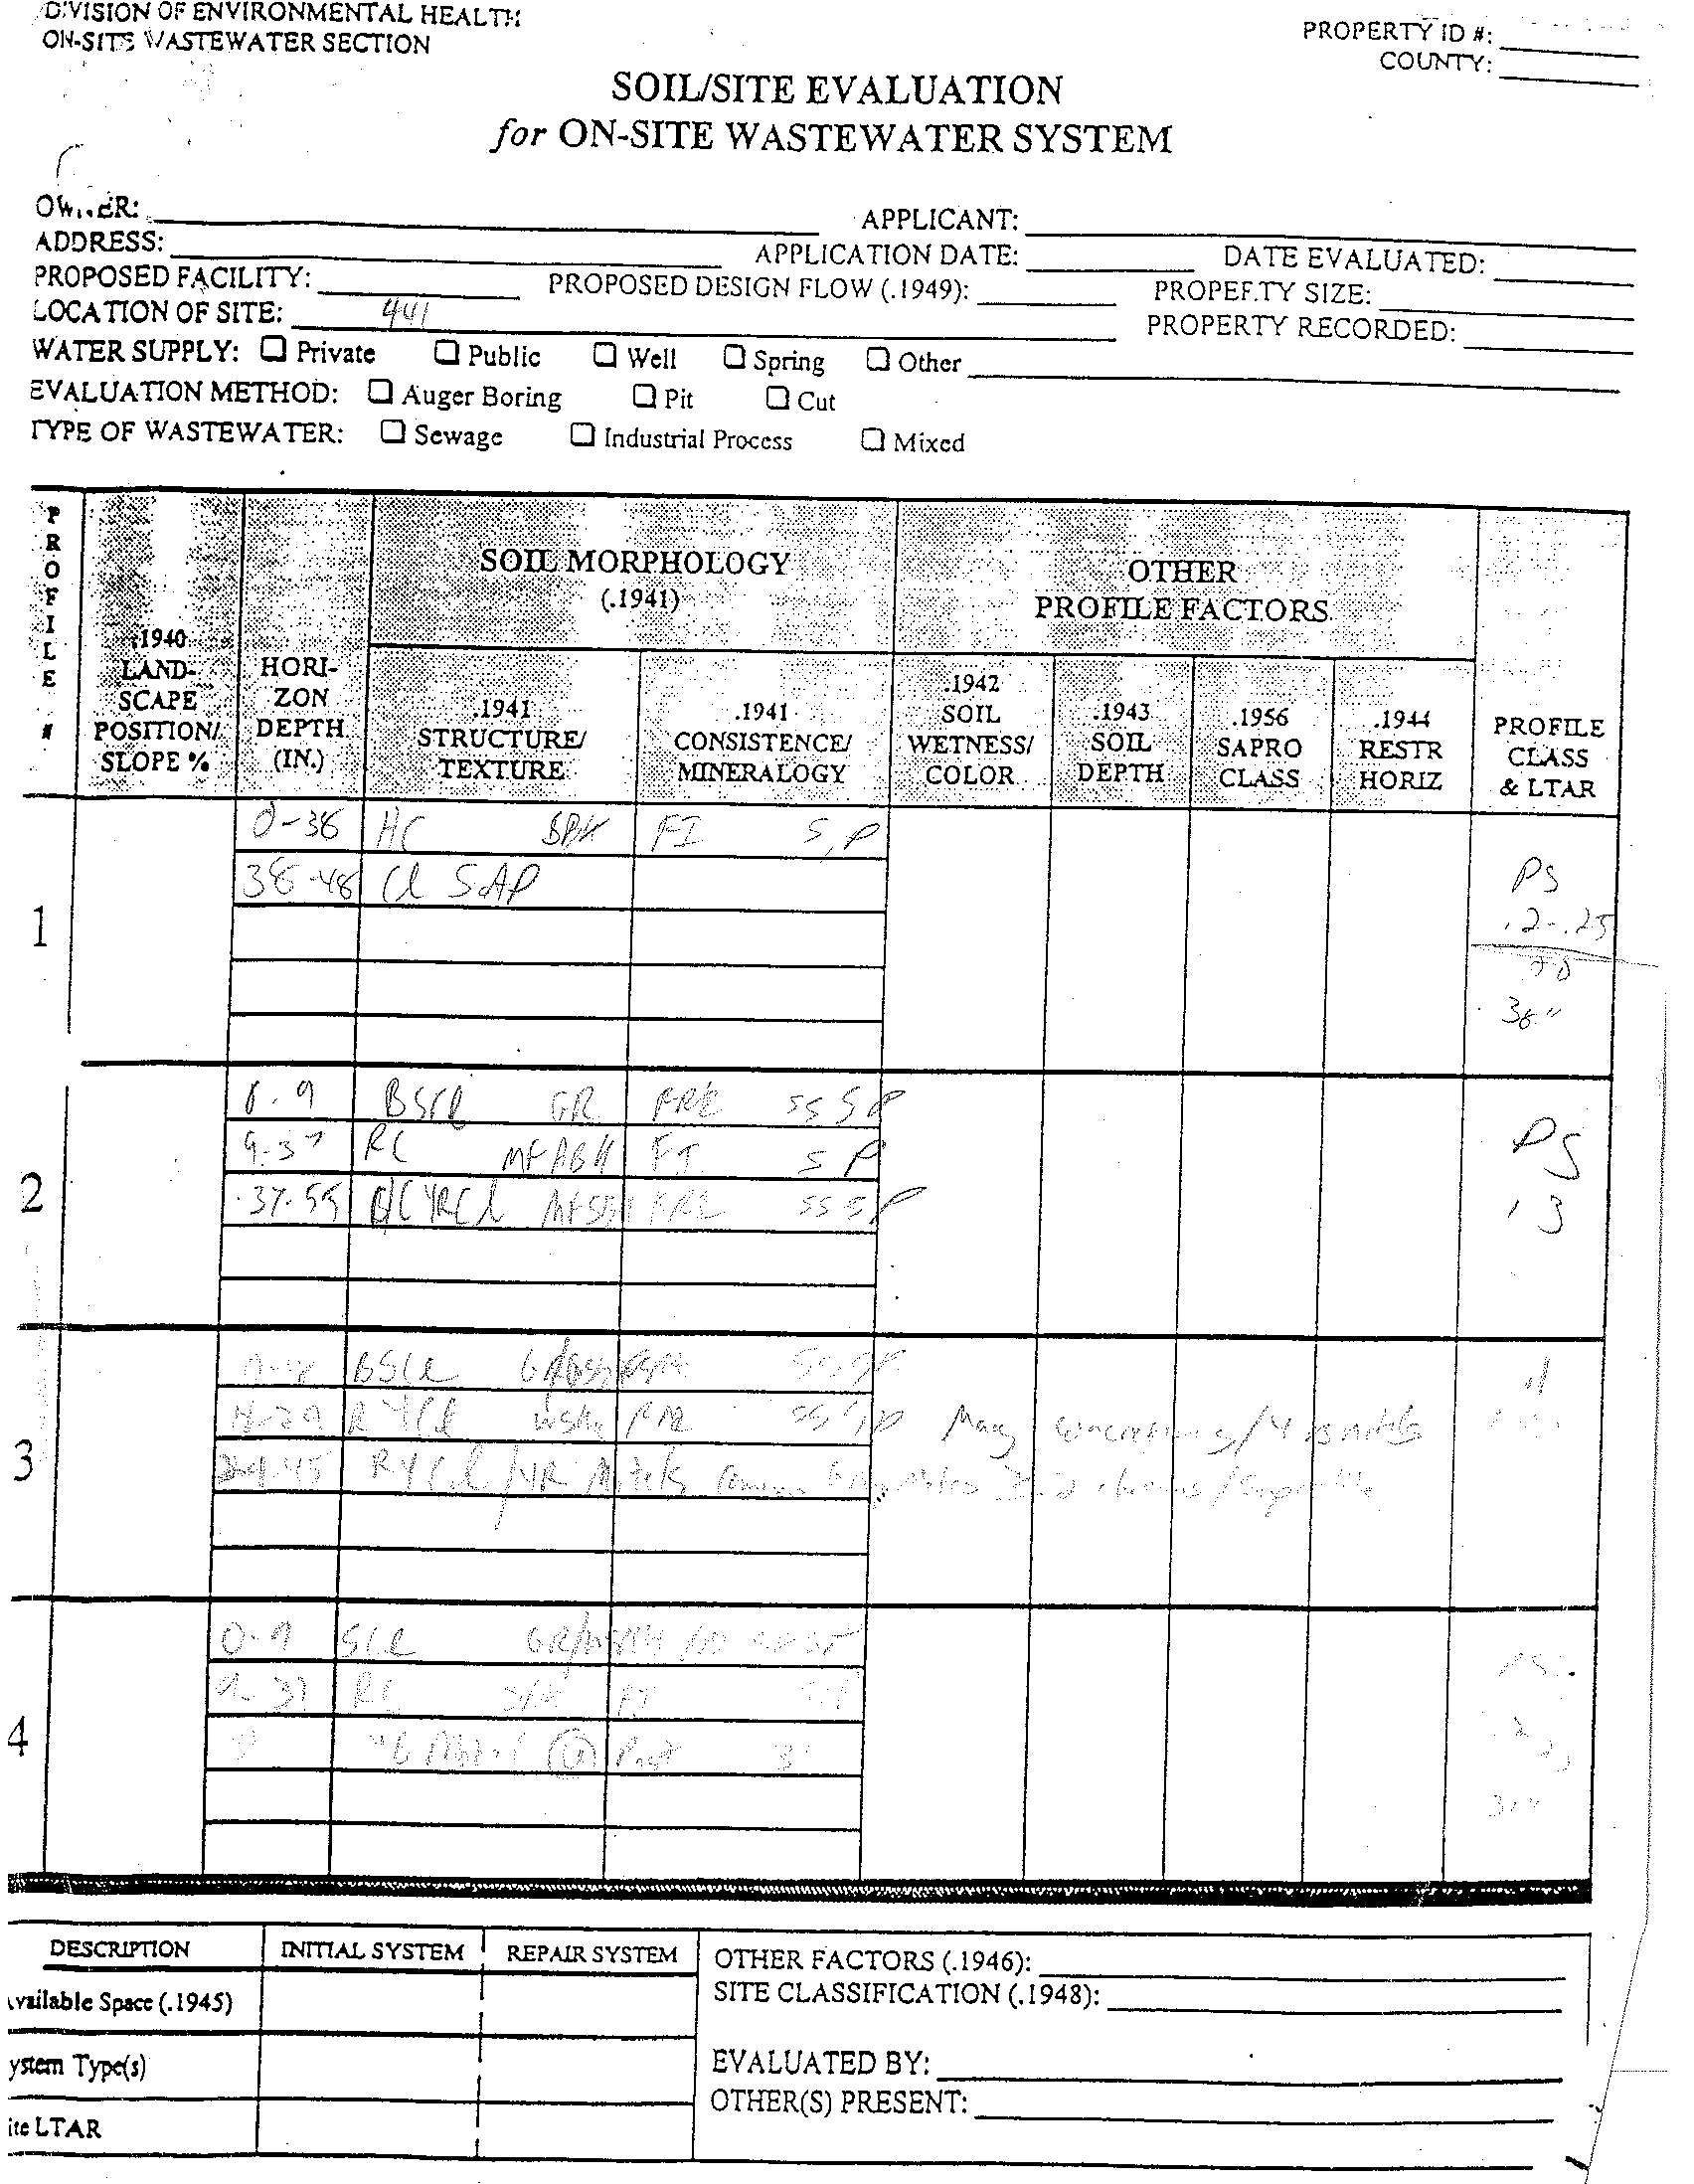 DIVISION OF ENVIRONMENTAL HEALTH
ON-SITE WASTEWATER SECTION
PROPERTY ID #:
COUNTY:
SOIL/SITE EVALUATION
for ON-SITE WASTEWATER SYSTEM
OWNER:
APPLICANT:
ADDRESS:
APPLICATION DATE:
DATE EVALUATED:
PROPOSED FACILITY:
PROPOSED DESIGN FLOW (.1949):
PROPERTY SIZE:
LOCATION OF SITE: 441
PROPERTY RECORDED:
WATER SUPPLY: ☐ Private ☐ Public ☐ Well ☐ Spring ☐ Other
EVALUATION METHOD: ☐ Auger Boring ☐ Pit ☐ Cut
TYPE OF WASTEWATER: ☐ Sewage ☐ Industrial Process ☐ Mixed
PROFILE #
.1940 LAND-SCAPE POSITION/ SLOPE %
HORI-ZON DEPTH (IN.)
SOIL MORPHOLOGY
(.1941)
.1941 STRUCTURE/ TEXTURE
.1941 CONSISTENCE/ MINERALOGY
OTHER
PROFILE FACTORS
.1942 SOIL WETNESS/ COLOR
.1943 SOIL DEPTH
.1956 SAPRO CLASS
.1944 RESTR HORIZ
PROFILE CLASS & LTAR
1
0-38 HC SBK FI S,P
38-48 Cl SAP
PS
.2-.25
38"
2
0-9 BSCl GR FRE SS SP
9-37 RC MFABK FI S P
37-55 MFSBK FRE SS SP
PS
.3
3
BSCl SS,SP
RYCl SS,SP Many concretions
RYCl/YR Mottles Common
4
0-9 SCl
9-37 RC FI
DESCRIPTION
INITIAL SYSTEM
REPAIR SYSTEM
OTHER FACTORS (.1946):
SITE CLASSIFICATION (.1948):
Available Space (.1945)
ystem Type(s)
EVALUATED BY:
OTHER(S) PRESENT:
ite LTAR